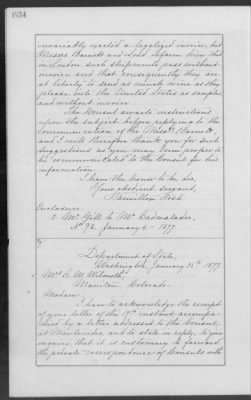 634
invariably exacted a legalized invoice, but
Messrs Barnett and Lord inform him that
in London such shipments pass without
invoice and that consequently they are
at liberty to send as much wine as they
please into the United States as samples
and without invoice.
The Consul awaits instructions
upon the subject before replying to the
communication of the Messrs Barnett,
and I will therefore thank you for such
suggestions as you may deem proper to
be communicated to the Consul for his
information.
I have the honor to be, Sir,
Your obedient servant,
Hamilton Fish
Enclosure.
Mr Gill to Mr Cadwalader,
No 92. January 2 - 1877.
Department of State,
Washington, January 25th 1877
Mrs F. M. Wilmoth,
Manitou, Colorado.
Madame:
I have to acknowledge the receipt
of your letter of the 19th instant accompa-
nied by a letter addressed to the Consul
at Montevideo, and to state in reply to your
inquiry, that it is customary to forward
the private correspondence of Consuls with